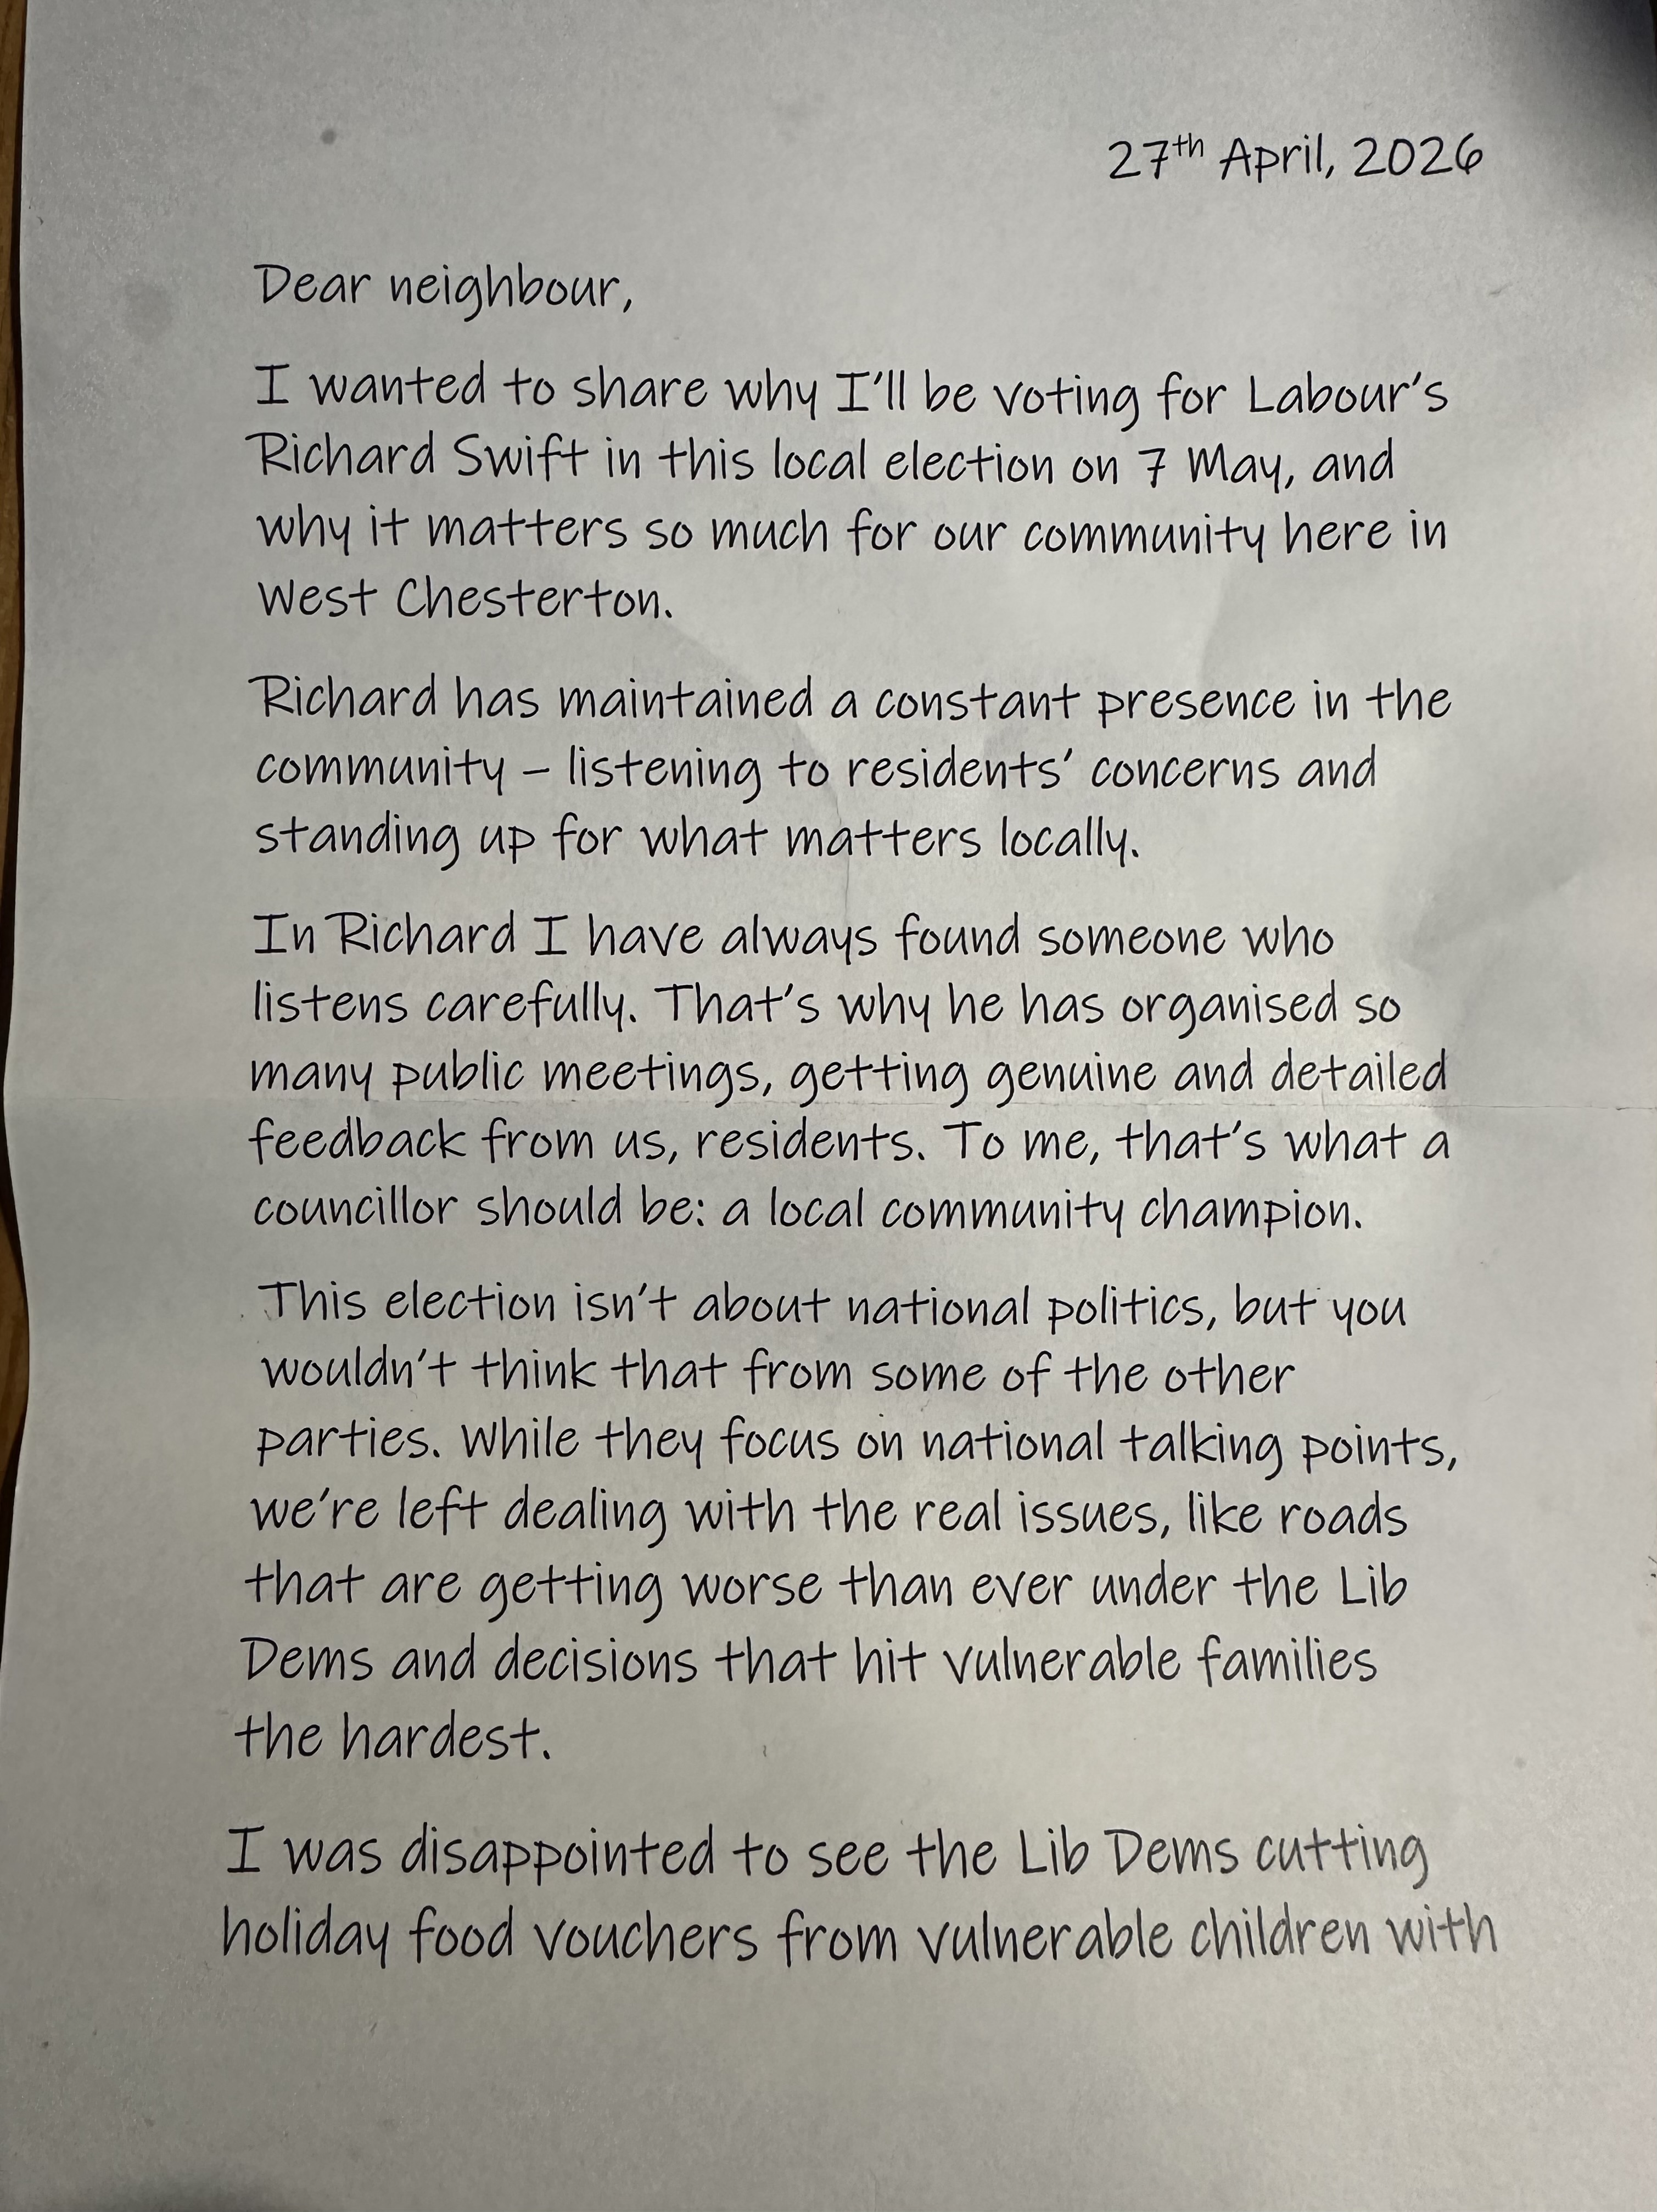 27th April, 2026
Dear neighbour,
I wanted to share why I'll be voting for Labour's
Richard Swift in this local election on 7 May, and
why it matters so much for our community here in
West Chesterton.
Richard has maintained a constant presence in the
community – listening to residents' concerns and
standing up for what matters locally.
In Richard I have always found someone who
listens carefully. That's why he has organised so
many public meetings, getting genuine and detailed
feedback from us, residents. To me, that's what a
councillor should be: a local community champion.
This election isn't about national politics, but you
wouldn't think that from some of the other
parties. While they focus on national talking points,
we're left dealing with the real issues, like roads
that are getting worse than ever under the Lib
Dems and decisions that hit vulnerable families
the hardest.
I was disappointed to see the Lib Dems cutting
holiday food vouchers from vulnerable children with